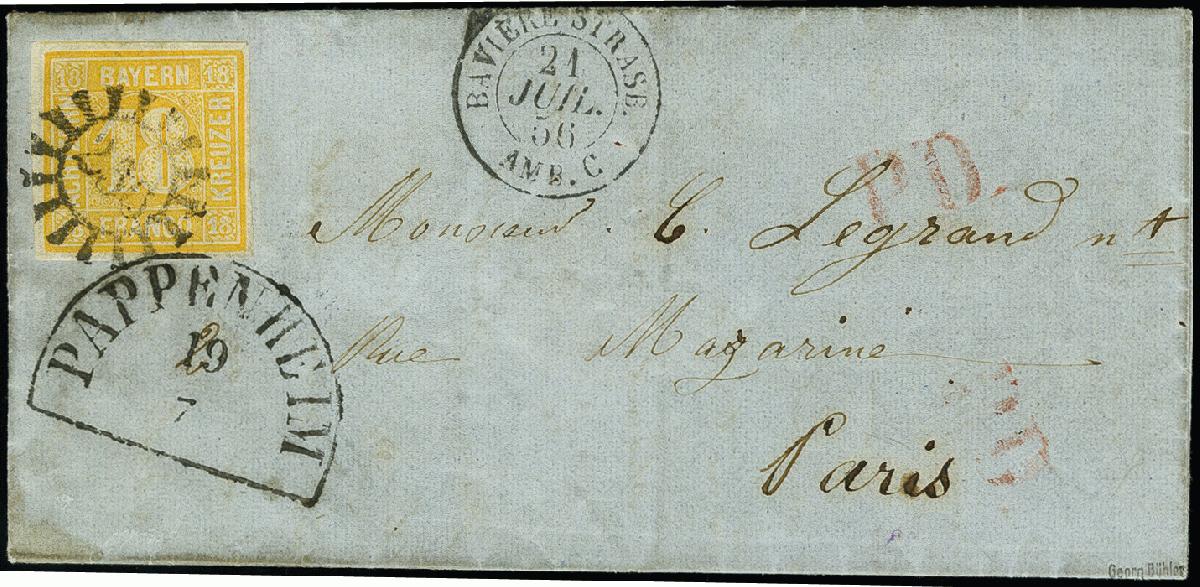 18 BAYERN 18
KREUZER
18
FRANCO 18
BAVIERE STRASB.
21
JUIL.
56
AMB. C
P.D.
Monsieur E. Legrand
Rue Mazarine
Paris
PAPPENHEIM
19
7
Georg Bühler